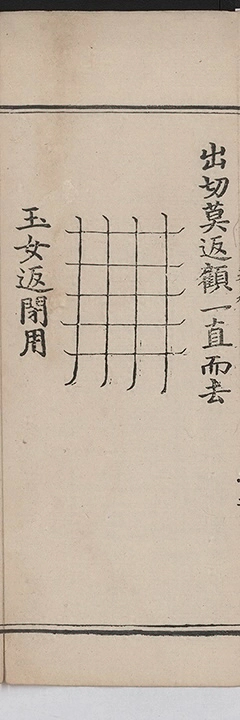 出切莫返顧一直而去
玉女返閉用